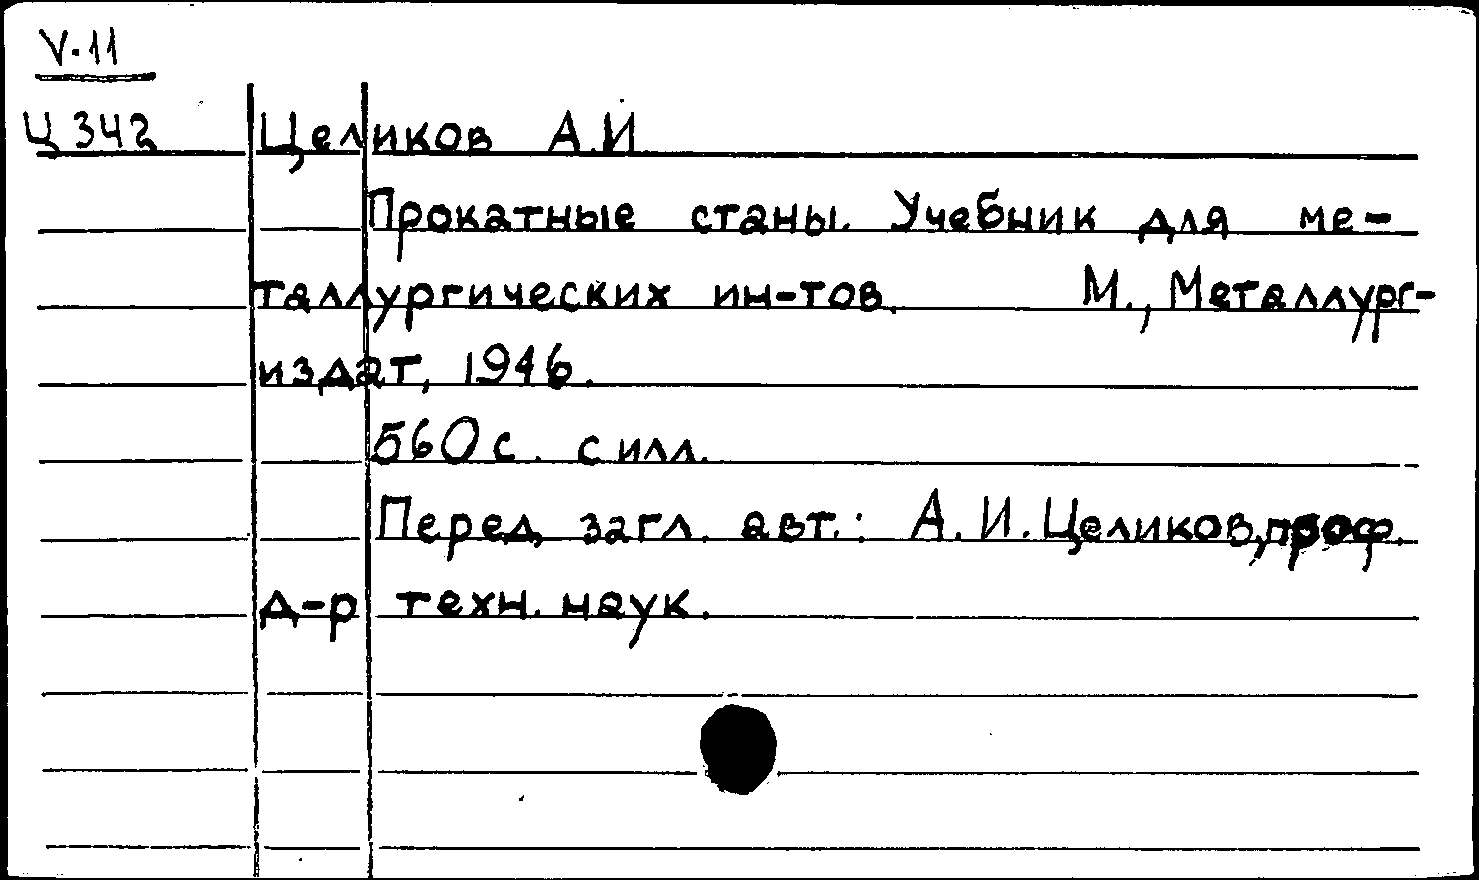 V.11
Ц342 Целиков А.И
Прокатные станы. Учебник для ме-
таллургических ин-тов. М., Металлург-
издат, 1946.
560 с. с илл.
Перед загл. авт.: А.И.Целиков, проф.
д-р техн. наук.